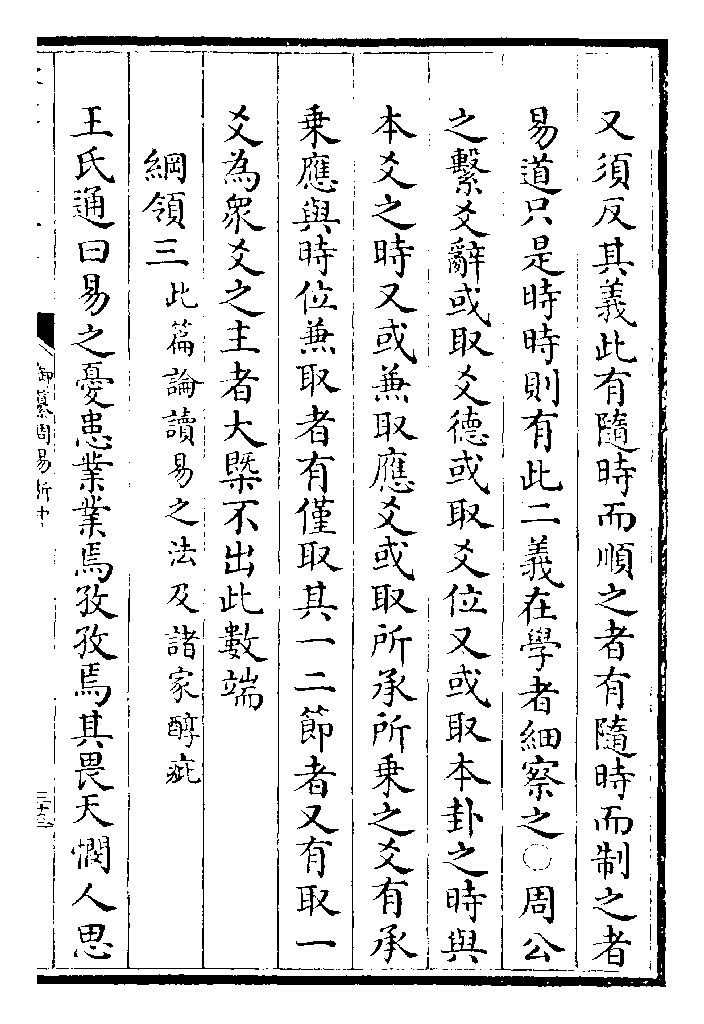 又須反其義此有隨時而順之者有隨時而制之者
易道只是時時則有此二義在學者細察之○周公
之繫爻辭或取爻德或取爻位又或取本卦之時與
本爻之時又或兼取應爻或取所承所乗之爻有承
乗應與時位兼取者有僅取其一二節者又有取一
爻為衆爻之主者大槩不出此數端
綱領三此篇論讀易之法及諸家醇疵
王氏通曰易之憂患業業焉孜孜焉其畏天憫人思
御纂周易折中
三十三